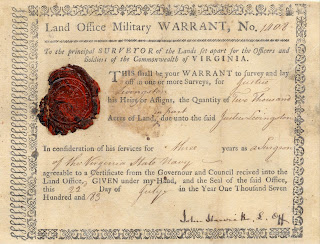 Land Office Military WARRANT, No. 1404
To the principal SURVEYOR of the Lands set apart for the Officers and
Soldiers of the Commonwealth of VIRGINIA.
THIS shall be your WARRANT to survey and lay
off in one or more Surveys, for Justus
Livingston
his Heirs or Assigns, the Quantity of two thousand
Acres of Land, due unto the said Justus Livingston
In consideration of his services for three years as a Surgeon
of the Virginia State Navy
agreeable to a Certificate from the Governour and Council received into the
Land Office. GIVEN under my Hand, and the Seal of the said Office,
this 22 Day of July in the Year One Thousand Seven
Hundred and 83